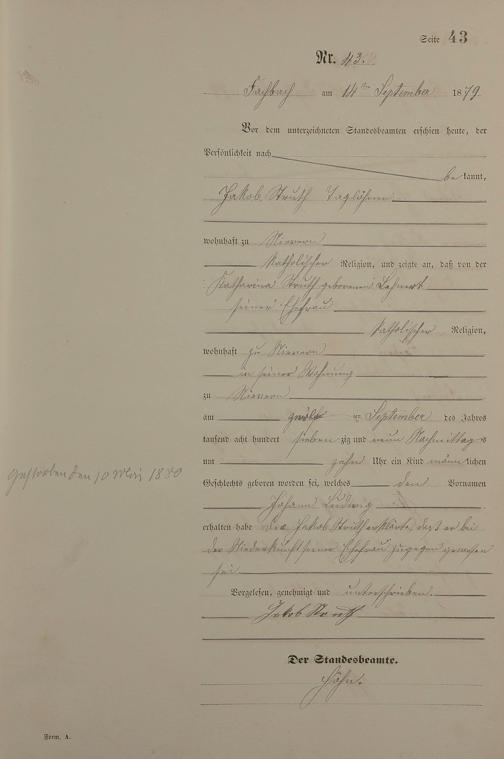 Seite 43
Nr. 43.
Fachbach am 14ten September 1879
Vor dem unterzeichneten Standesbeamten erschien heute, der
Persönlichkeit nach
be kannt,
Jakob Struth Taglöhner
wohnhaft zu Nievern
katholischer Religion, und zeigte an, daß von der
Katharina Struth geborenen Lehnert
seiner Ehefrau
katholischer Religion,
wohnhaft zu Nievern
in seiner Wohnung
zu Nievern
am zwölften September des Jahres
tausend acht hundert sieben zig und neun Nachmittags
um zehn Uhr ein Kind männlichen
Geschlechts geboren worden sei, welches den Vornamen
Gestorben den 10 Mai 1880
Johann Ludwig
erhalten habe der Jakob Struth erklärte, daß er bei
der Niederkunft seiner Ehefrau zugegen gewesen
sei
Vorgelesen, genehmigt und unterschrieben.
Jakob Struth
Der Standesbeamte.
Höhn.
Form. A.